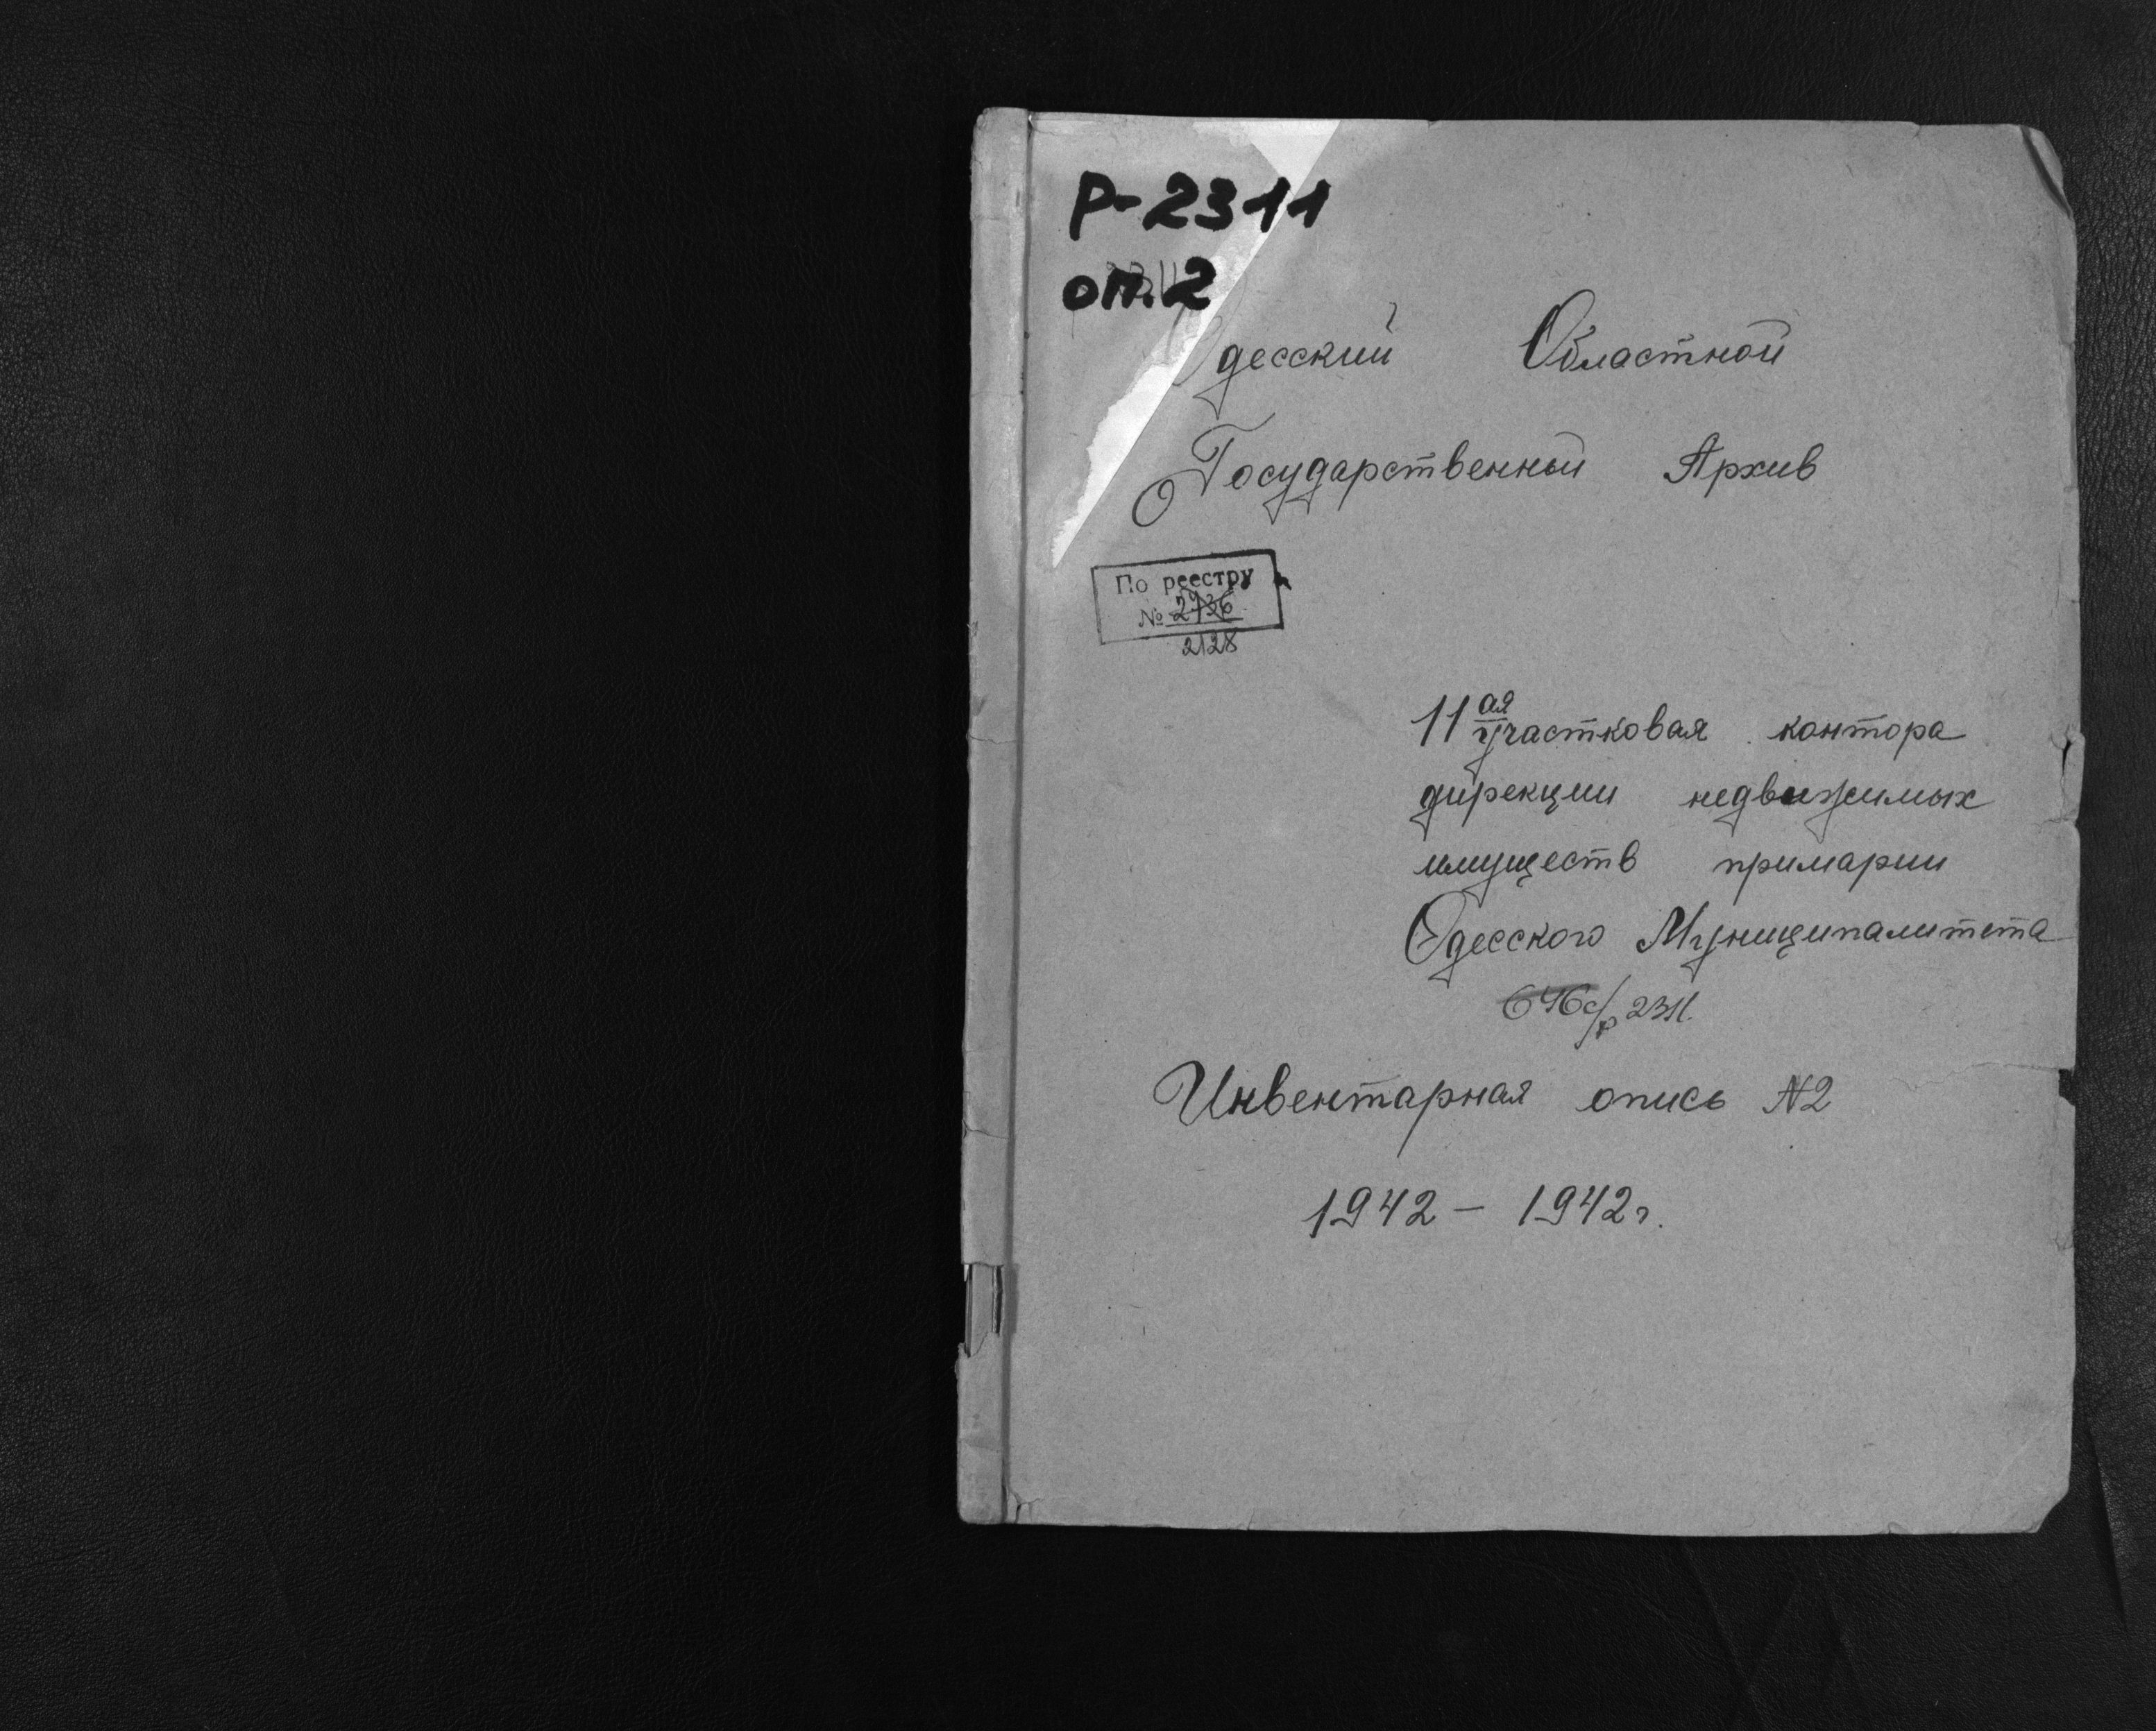 Р-2311
оп.2
Одесский Областной
Государственный Архив
По реестру
№ 2736
2128
11ая участковая контора
дирекции недвижимых
имуществ примарии
Одесского Муниципалитета
646с/р 2311.
Инвентарная опись №2
1942 - 1942г.